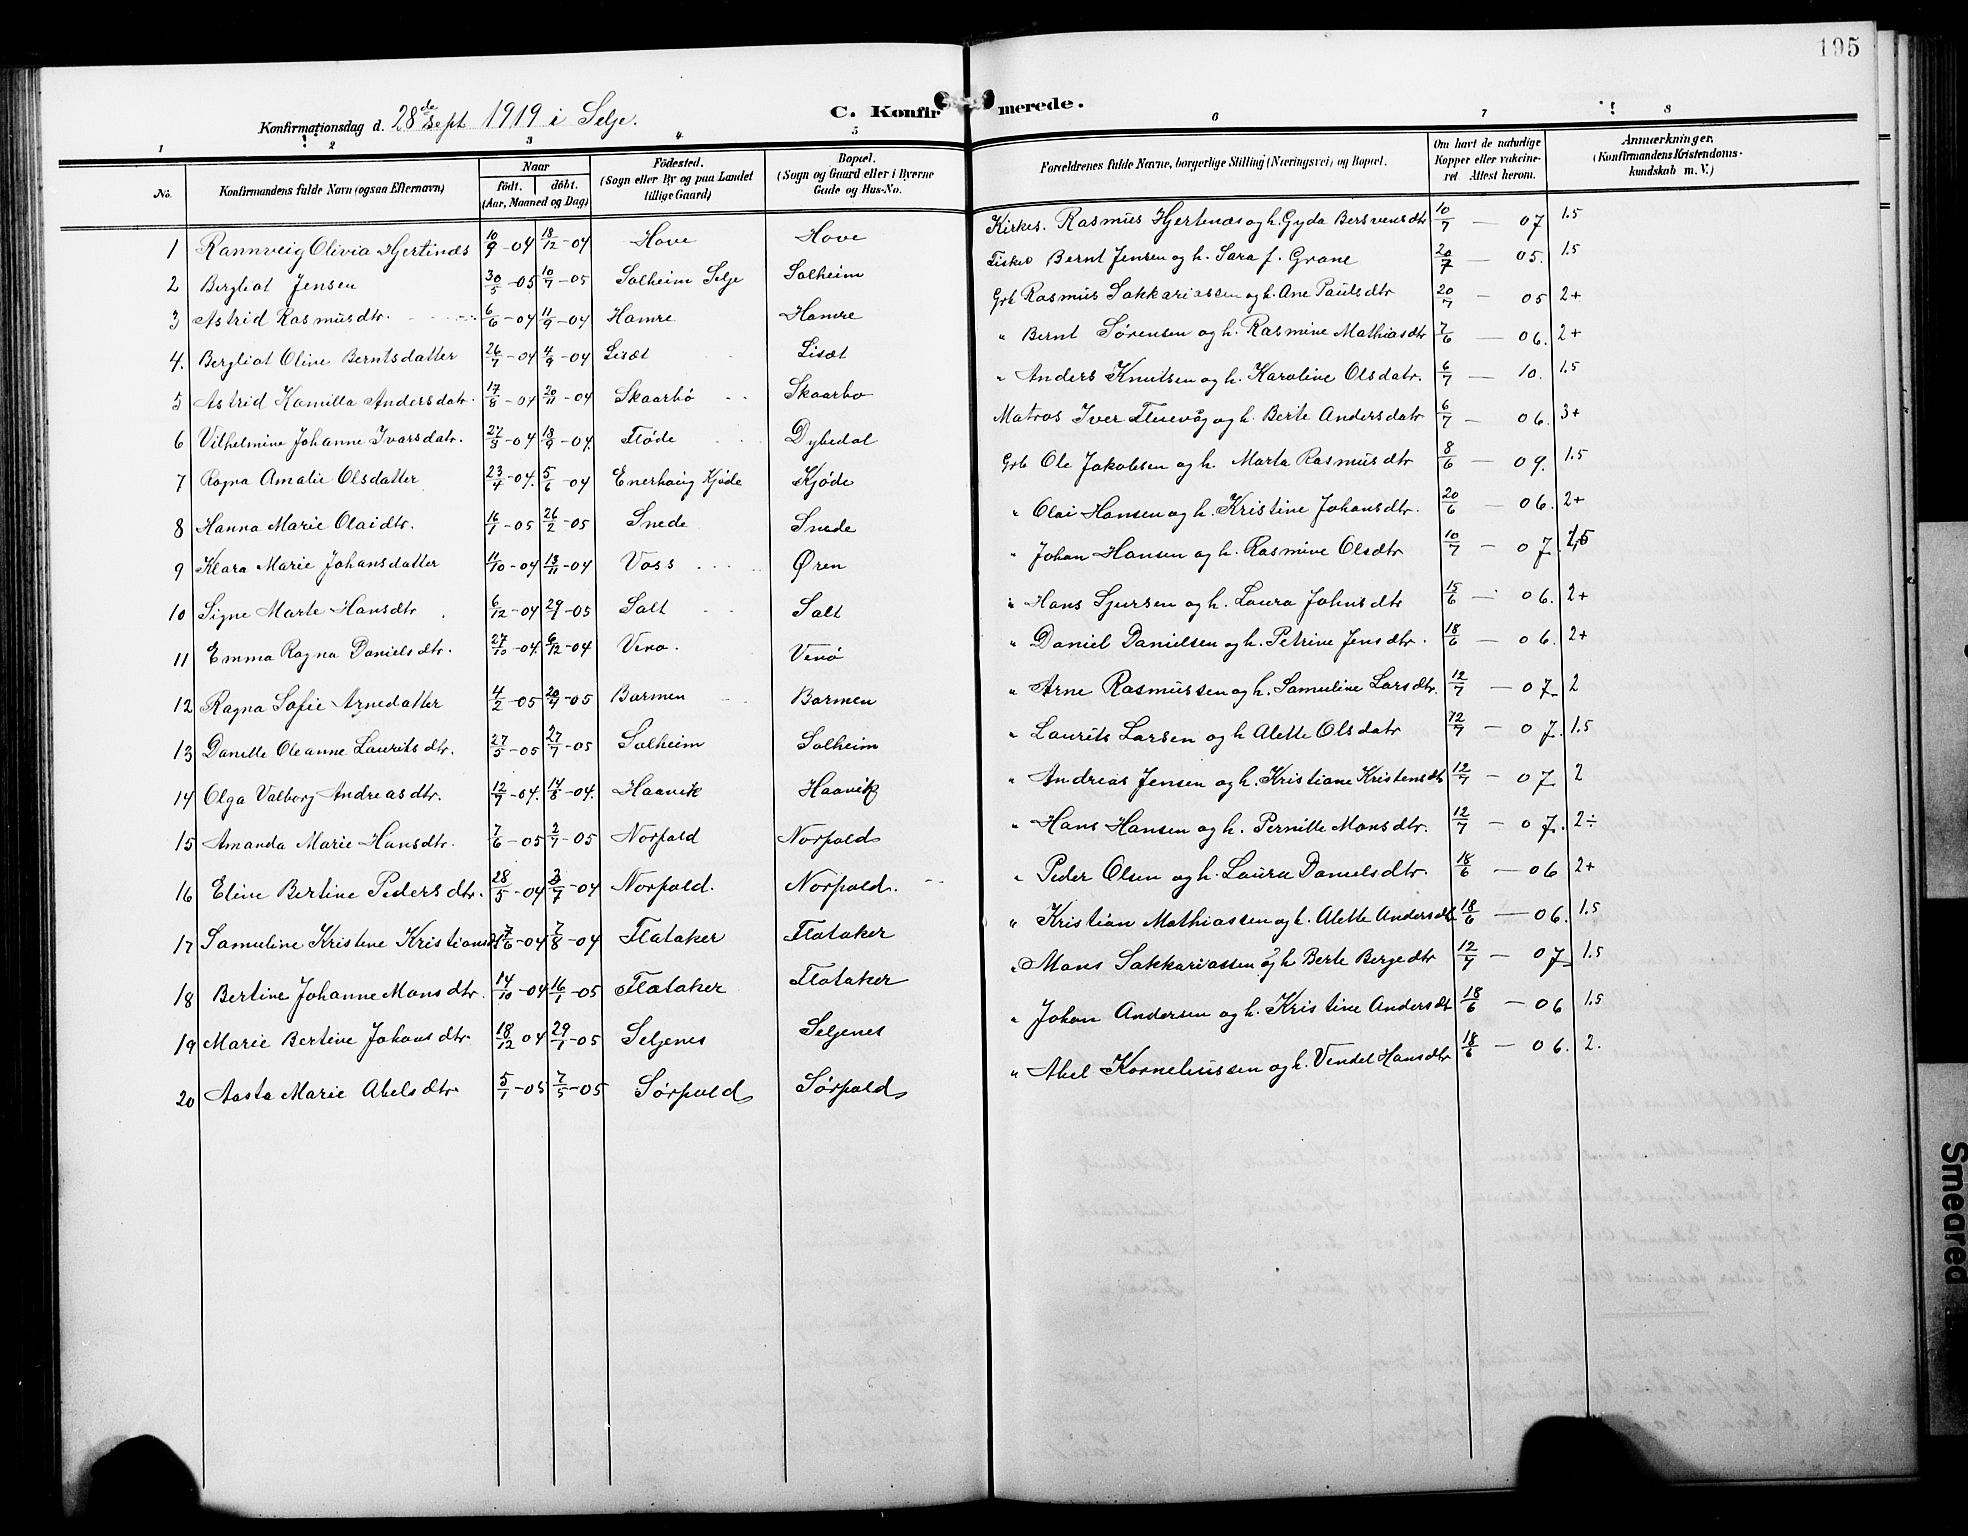 195
Konfirmationsdag d. 28de Sept 1919 i Selje. C. Konfirmerede.
1 2 3 4 5 6 7 8
No. Konfirmandens fulde Navn (ogsaa Efternavn) Naar født. døbt. (Aar, Maaned og Dag) Fødested. (Sogn eller By og paa Landet tillige Gaard) Bopæl. (Sogn og Gaard eller i Byerne Gade og Hus-No. Forældrenes fulde Navne, borgerlige Stilling (Næringsvei) og Bopæl. Om havt de naturlige Kopper eller vakcineret Attest herom. Anmærkninger, (Konfirmandens Kristendomskundskab m. V.)
1 Rannveig Olivia Hjertinæs 10/9-04 18/12-04 Hove Hove Kirkes. Rasmus Hjertenæs og h. Gyda Bersvensdtr 10/7 — 07 1.5
2 Bergliot Jensen 30/5-05 10/7-05 Salheim Selje Salheim Fisker Bernt Jensen og h. Sara f. Grane 20/7 — 05. 1.5
3 Astrid Rasmusdtr. 6/6-04 11/9-04 Hamre Hamre Grb Rasmus Sakkariassen og h. Ane Paulsdtr 20/7 — 05 2+
4. Bergliot Oline Berntsdatter 26/7-04 4/9-04 Lisæt Lisæt " Bernt Sørensen og h. Rasmine Mathiasdtr 7/6 — 06. 2+
5 Astrid Kamilla Andersdatr. 17/8-04 20/11-04 Skaarbø Skaarbo " Anders Knutsen og h. Karoline Olsdatr. 6/7 — 10. 1.5
6 Vilhelmine Johanne Ivarsdatr. 27/5-04 18/9-04. Fløde Dybedal Matros Iver Fluevåg og h. Berte Andersdatr 6/7 — 06. 3+
7 Ragna Amalie Olsdatter 23/4-04. 5/6-04 Enerhaug Kjøde Kjøde Grb Ole Jakobsen og h. Marta Rasmusdtr 8/6 — 09. 1.5
8 Hanna Marie Olaidtr. 16/1-05 26/2-05 Snede Snede " Olai Hansen og h. Kristine Johansdtr. 20/6 — 06. 2+
9 Klara Marie Johansdatter 11/10-04 13/11-04 Voss Øren " Johan Hansen og h. Rasmine Olsdtr 10/7 — 07. 1,5
10 Signe Marte Hansdtr 6/12-04 29/1-05 Salt Salt " Hans Sjursen og h. Laura Johnsdtr 15/6 — 06. 2+
11 Emma Ragna Danielsdtr. 27/10-04. 6/12-04 Venø. Venø " Daniel Danielsen og h. Petrine Jensdtr. 18/6 — 06. 2+
12 Ragna Sofie Arnedatter 4/2-05 20/4-05 Barmen Barmen " Arne Rasmussen og h. Samuline Larsdtr. 12/7 — 07 2
13 Danille Oleanne Lauritsdtr. 27/5-05 27/7-05 Salheim Salheim " Laurits Larsen og h Alette Olsdatr 12/7 — 07. 1.5
14 Olga Valborg Andreasdtr. 12/7-04. 14/8-04. Haavik Haavik " Andreas Jensen og h. Kristiane Kristensdtr 12/7 — 07 2
15 Amanda Marie Hansdtr. 7/6-05 2/7-05 Norpold Norpold " Hans Hansen og h. Pernille Monsdtr. 12/7 — 07. 2÷
16 Eline Bertine Pedersdtr. 28/5-04 3/7-04 Norpold. Norpold. " Peder Olsen og h. Laura Danielsdtr. 18/6 — 06 2+
17 Samuline Kristine Kristiansdtr 7/6-04 7/8-04 Flataker Flataker " Kristian Mathiassen og h. Alette Andersdtr 18/6 — 06. 1.5
18 Bertine Johanne Monsdtr. 14/10-04 16/1-05 Flataker Flataker " Mons Sakkariassen og h Berte Bergedtr 12/7 — 07 1.5
19 Marie Bertine Johansdtr. 18/12 04 29/1-05 Seljenes Seljenes " Johan Andersen og h. Kristine Andersdtr 18/6 — 06 1.5
20 Aasta Marie Abelsdtr 5/1-05 7/5-05 Sørpold Sørpold " Abel Korneliussen og h. Vendel Hansdtr 18/6 — 06. 2.
Smeared